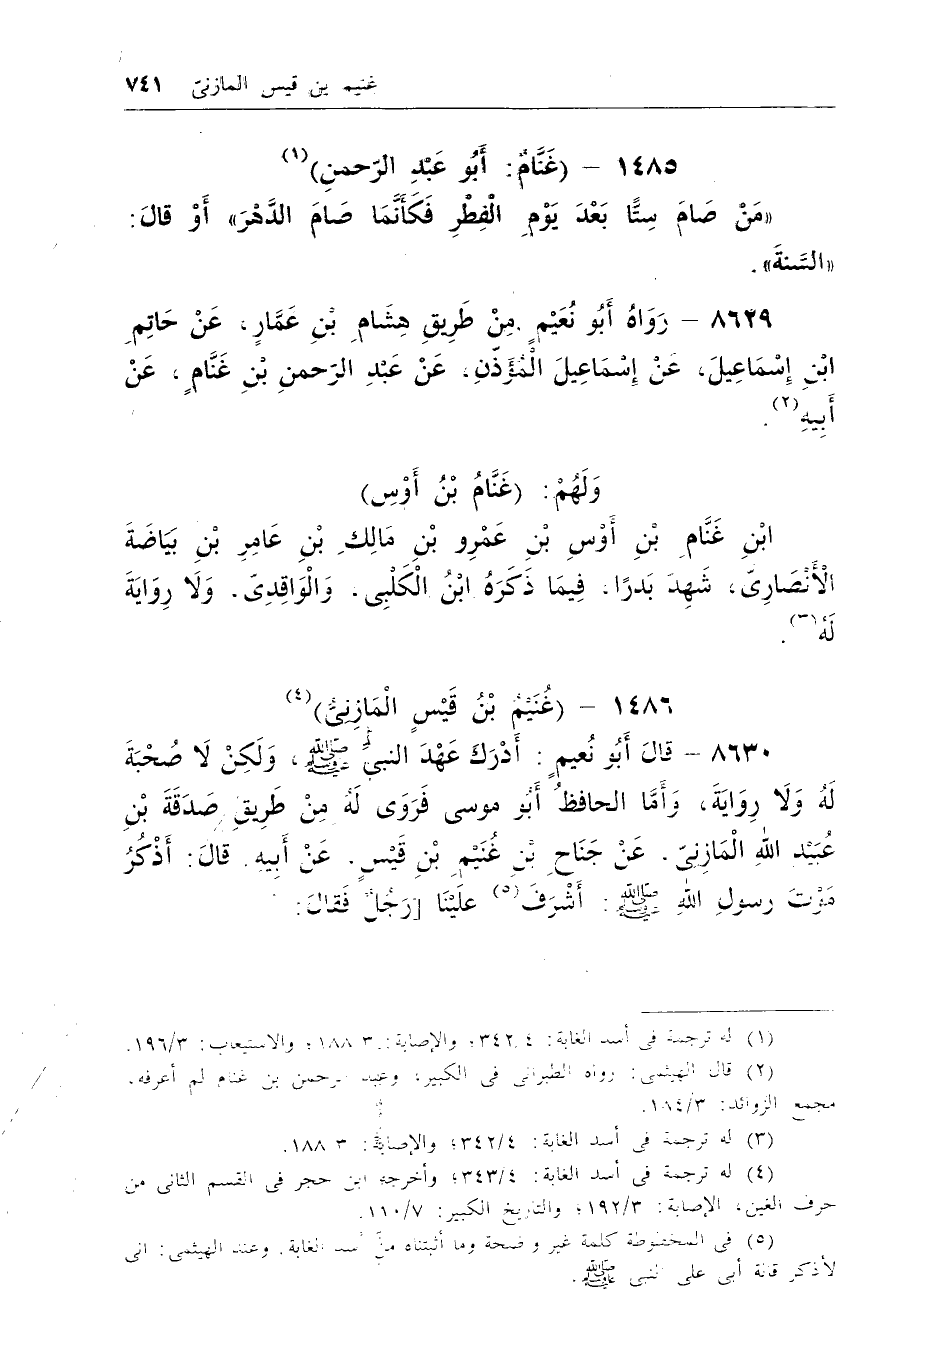 غنيم بن قيس المازنىّ ٧٤١
١٤٨٥ – (غَنَّامٌ: أَبُو عَبْدِ الرّحمنِ)(١)
«مَنْ صَامَ سِتًّا بَعْدَ يَوْمِ الْفِطْرِ فَكَأَنَّمَا صَامَ الدَّهْرَ» أَوْ قالَ:
«السَّنةَ».
٨٦٢٩ – رَوَاهُ أَبُو نُعَيْمٍ مِنْ طَرِيقِ هِشَامِ بْنِ عَمَّارٍ، عَنْ حَاتِمِ
ابْنِ إِسْمَاعِيلَ، عَنْ إِسْمَاعِيلَ الْمُؤَذّنِ، عَنْ عَبْدِ الرّحمنِ بْنِ غَنَّامٍ، عَنْ
أَبِيهِ(٢).
وَلَهُمْ: (غَنَّامُ بْنُ أَوْسِ)
ابْنِ غَنَّامِ بْنِ أَوْسِ بْنِ عَمْرِو بْنِ مَالِكِ بْنِ عَامِرِ بْنِ بَيَاضَةَ
الْأَنْصَارِىّ، شَهِدَ بَدرًا، فِيمَا ذَكَرَهُ ابْنُ الْكَلْبِى. وَالْوَاقِدِىّ. وَلَا رِوَايَةَ
لَهُ(٣).
١٤٨٦ – (غُنَيْمُ بْنُ قَيْسٍ الْمَازِنِىُّ)(٤)
٨٦٣٠ – قالَ أَبُو نُعيمٍ: أَدْرَكَ عَهْدَ النبىِّ ﷺ، وَلَكِنْ لَا صُحْبَةَ
لَهُ وَلَا رِوَايَةَ، وَأَمَّا الحافظُ أَبُو موسى فَرَوَى لَهُ مِنْ طَرِيقِ صَدَقَةَ بْنِ
عُبَيْد اللهِ الْمَازِنِىّ. عَنْ جَنَاحِ بْنِ غُنَيْمِ بْنِ قَيْسٍ. عَنْ أَبِيهِ. قالَ: أَذْكُرُ
مَوْتَ رسولِ اللهِ ﷺ: أَشْرَفَ(٥) علَيْنَا [رَجُلٌ فَقالَ:
(١) له ترجمة فى أسد الغابة: ٤ ٣٤٢؛ والإصابة: ٣ ١٨٨؛ والاستيعاب: ١٩٦/٣.
(٢) قال الهيثمى: رواه الطبرانى فى الكبير، وعبد الرحمن بن غنام لم أعرفه.
مجمع الزوائد: ١٨٤/٣.
(٣) له ترجمة فى أسد الغابة: ٣٤٢/٤؛ والإصابة: ٣ ١٨٨.
(٤) له ترجمة فى أسد الغابة: ٣٤٣/٤؛ وأخرجه ابن حجر فى القسم الثانى من
حرف الغين، الإصابة: ١٩٢/٣؛ والتاريخ الكبير: ١١٠/٧.
(٥) فى المخطوطة كلمة غير واضحة وما أثبتناه من أسد الغابة. وعند الهيثمى: انى
لأذكر قالة أبى على النبى ﷺ.